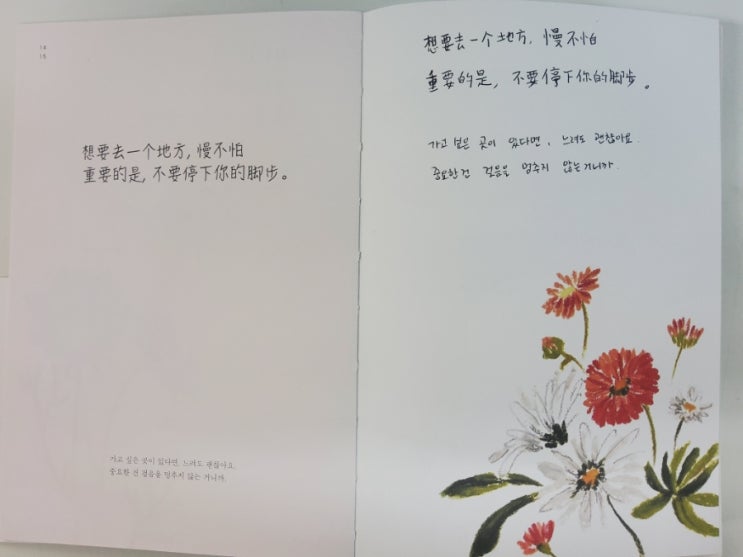 14
15
想要去一个地方, 慢不怕
重要的是, 不要停下你的脚步。
가고 싶은 곳이 있다면, 느려도 괜찮아요.
중요한 건 걸음을 멈추지 않는 거니까.
想要去一个地方, 慢不怕
重要的是, 不要停下你的脚步。
가고 싶은 곳이 있다면, 느려도 괜찮아요.
중요한건 걸음을 멈추지 않는거니까.